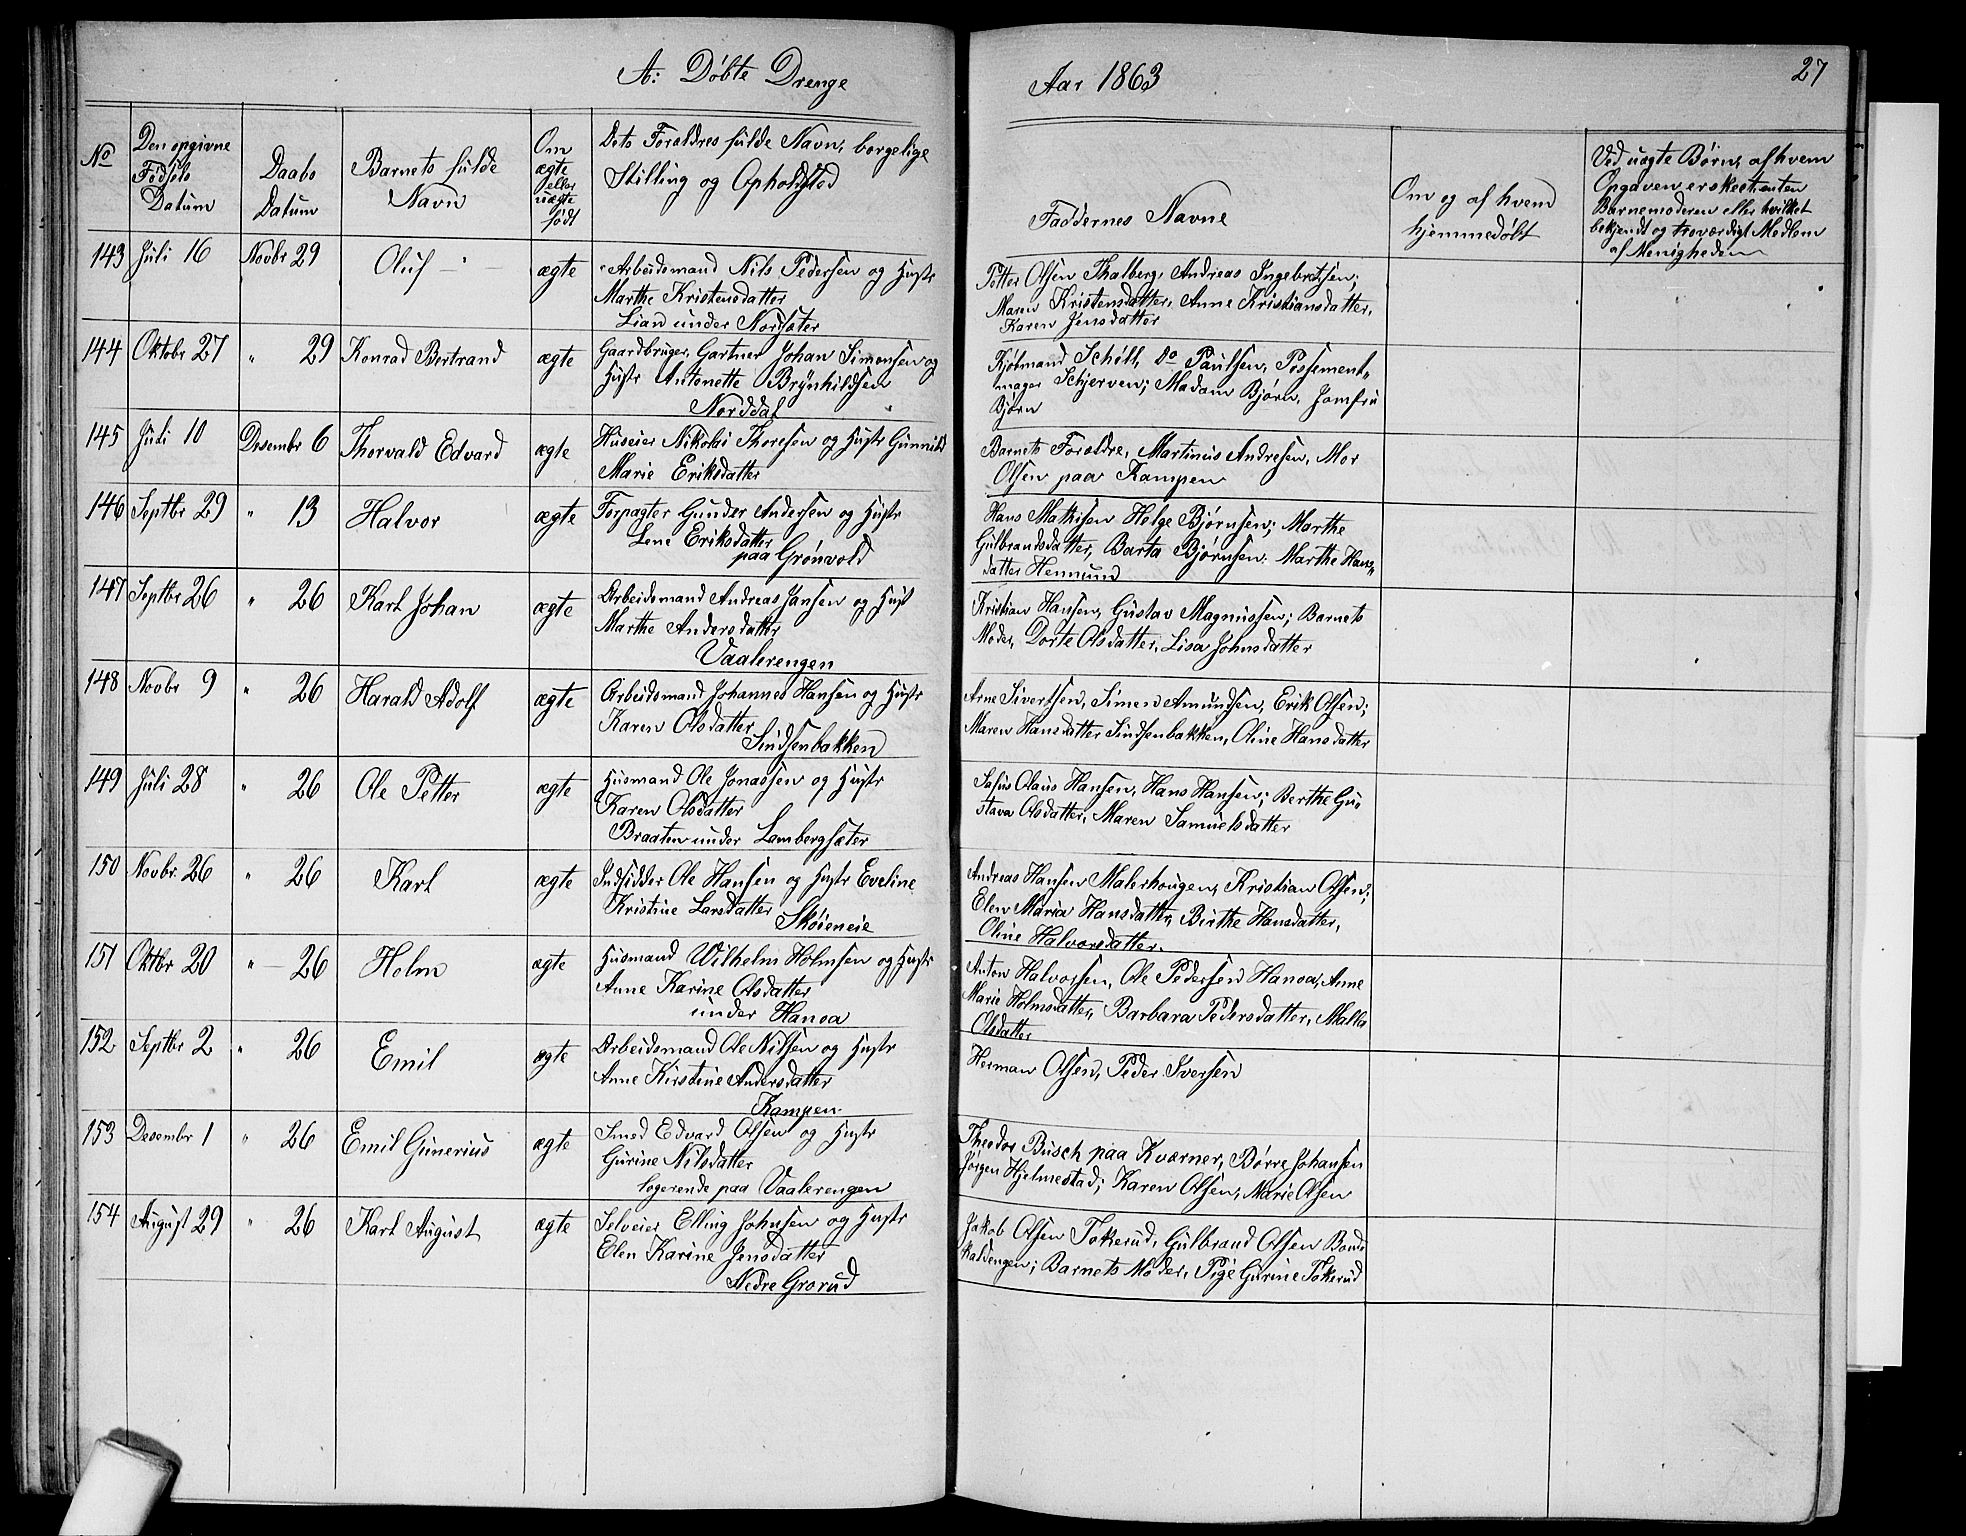 A: Døbte Drenge
No
Den opgivne Fødsels Datum
Daabs Datum
Barnets fulde Navn
Om ægte eller uægte født
Dets Forældres fulde Navn, borgelige Stilling og Opholdsted
143 Juli 16 Novbr 29 Oluf ægte Arbeidsmand Nils Pedersen og Hustr
Marthe Kristensdatter
Lian under Norsæter
144 Oktobr 27 " 29 Konrad Bertrand ægte Gaardbruger, Gartner Johan Simensen og
Hustr Antonette Brynhildsen
Norddal
145 Juli 10 Desembr 6 Thorvald Edvard ægte Huseier Nikolai Thoresen og Hustr Gunnild
Marie Eriksdatter
146 Septbr 29 " 13 Halvor ægte Forpagter Gunder Andersen og Hustr
Lene Eriksdatter
paa Grønvold
147 Septbr 26 " 26 Karl Johan ægte Arbeidsmand Andreas Jansen og Hust
Marthe Andersdatter
Vaalerengen
148 Novbr 9 " 26 Harald Adolf ægte Arbeidsmand Johannes Hansen og Hustr
Karen Olsdatter
Sindsenbakken
149 Juli 28 " 26 Ole Petter ægte Husmand Ole Jonassen og Hustr
Karen Olsdatter
Braaten under Lambergsæter
150 Novbr. 26 " 26 Karl ægte Indsidder Ole Hansen og Hustr Eveline
Kristine Larsdatter
Skøieneie
151 Oktbr 20 " 26 Holm ægte Husmand Wilhelm Holmsen og Hustr
Anne Karine Olsdatter
under Hanoa
152 Septbr 2 " 26 Emil ægte Arbeidsmand Ole Nilsen og Hustr
Anne Kirstine Andersdatter
Kampen
153 Desembr 1 " 26 Emil Gunerius ægte Smed Edvard Olsen og Hustr
Gurine Nilsdatter
logerende paa Vaalerengen
154 August 29 " 26 Karl August ægte Selveier Elling Johnsen og Hustr
Elen Karine Jensdatter
Nedre Grorud
Aar 1863
27
Faddernes Navne
Om og af hvem hjemmedøbt
Ved uægte Børn, af hvem
Opgaven er skeet, enten
Barnemoderen eller hvilket
bekjendt og troværdigt Medlem
af Menigheden
Petter Olsen Thalberg, Andreas Ingebretsen;
Maren Kristensdatter, Anne Kristiansdatter,
Karen Jensdatter
Kjøbmand Schøll, Do Paulsen, Possement„
mager Schjerven; Madam Bjørn, Jomfru
Bjørn
Barnets Forældre, Martinus Andresen, Mor
Olsen paa Kampen
Hans Mathisen Helge Bjørnsen; Marthe
Gulbrandsdatter, Barta Bjørnsen. Marthe Hans„
datter Hemmund
Kristian Hansen, Gustav Magnussen; Barnets
Moder, Dorte Olsdatter, Lisa Johnsdatter
Arne Sivertsen, Simen Amundsen, Erik Olsen;
Maren Hansdatter Sindsenbakken, Oline Hansdatter
Olaus Hansen, Hans Hansen; Berthe Gu„
stava Olsdatter, Maren Samuelsdatter
Andreas Hansen Malerhougen, Kristian Olsen;
Elen Maria Hansdatter, Birthe Hansdatter,
Oline Halvorsdatter.
Anton Halvorsen, Ole Pedersen Hanoa, Anne
Marie Holmsdatter, Barbara Pedersdatter, Malla
Olsdatter
Herman Olsen, Peder Iversen
Theodor Busch paa Kværner, Børre Johansen
Jørgen Hjelmestad; Karen Olsen; Marie Olsen
Jakob Olsen Tokerud, Gulbrand Olsen Bond
kaldengen; Barnets Moder, Pige Gurine Tokerud